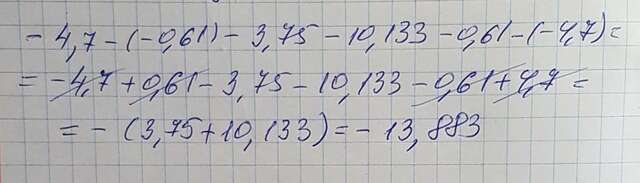 - 4,7 - (-0,61) - 3,75 - 10,133 - 0,61 - (-4,7) =
= -4,7 + 0,61 - 3,75 - 10,133 - 0,61 + 4,7 =
= - (3,75 + 10,133) = - 13,883